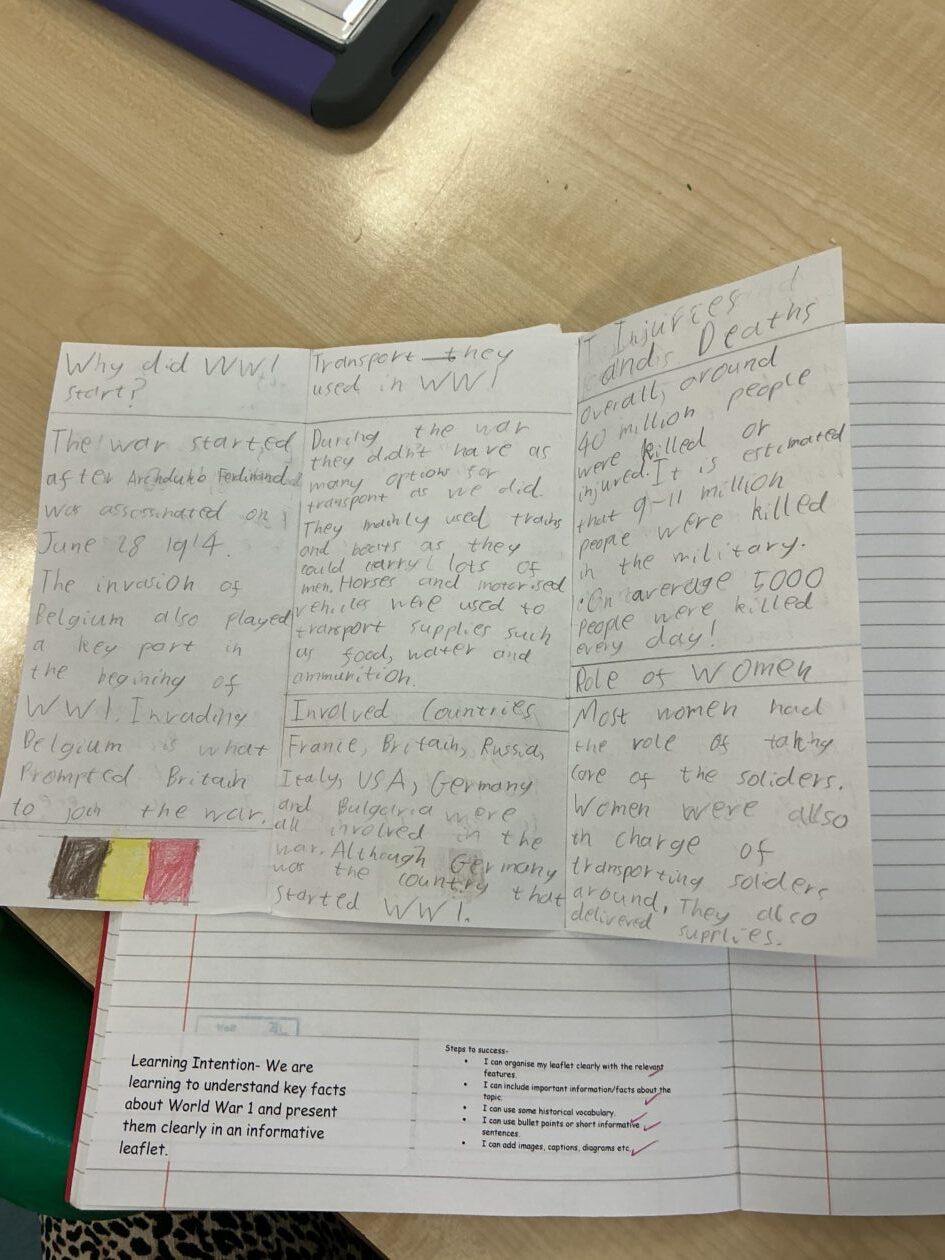 Why did WW1
start?
The war started
after Archduke Ferdinand
was assassinated on
June 28 1914.
The invasion of
Belgium also played
a key part in
the begining of
WW1. Invading
Belgium is what
Prompted Britain
to join the war.
Transport they
used in WW1
During the war
they didn't have as
many options for
transport as we did.
They mainly used trains
and boats as they
could carry lots of
men. Horses and motorised
vehicles were used to
transport supplies such
as food, water and
ammunition.
Involved Countries
France, Britain, Russia,
Italy, USA, Germany
and Bulgaria were
all involved in the
war. Although Germany
was the country that
started WW1.
Injuries
and Deaths
Overall, around
40 million people
were killed or
injured. It is estimated
that 9-11 million
people were killed
in the military.
• On average 5000
people were killed
every day!
Role of Women
Most women had
the role of taking
care of the soliders.
Women were also
in charge of
transporting soliders
around, They also
delivered supplies.
Learning Intention- We are
learning to understand key facts
about World War 1 and present
them clearly in an informative
leaflet.
Steps to success-
• I can organise my leaflet clearly with the relevant
features.
• I can include important information/facts about the
topic.
• I can use some historical vocabulary.
• I can use bullet points or short informative
sentences.
• I can add images, captions, diagrams etc.